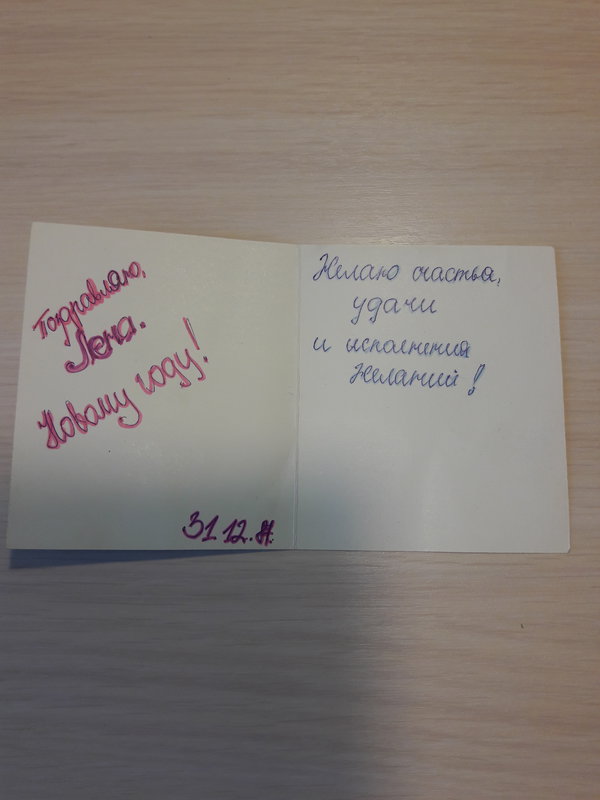 Поздравляю,
Лена.
Новому году!
31.12.
Желаю счастья,
удачи
и исполнения
Желаний!